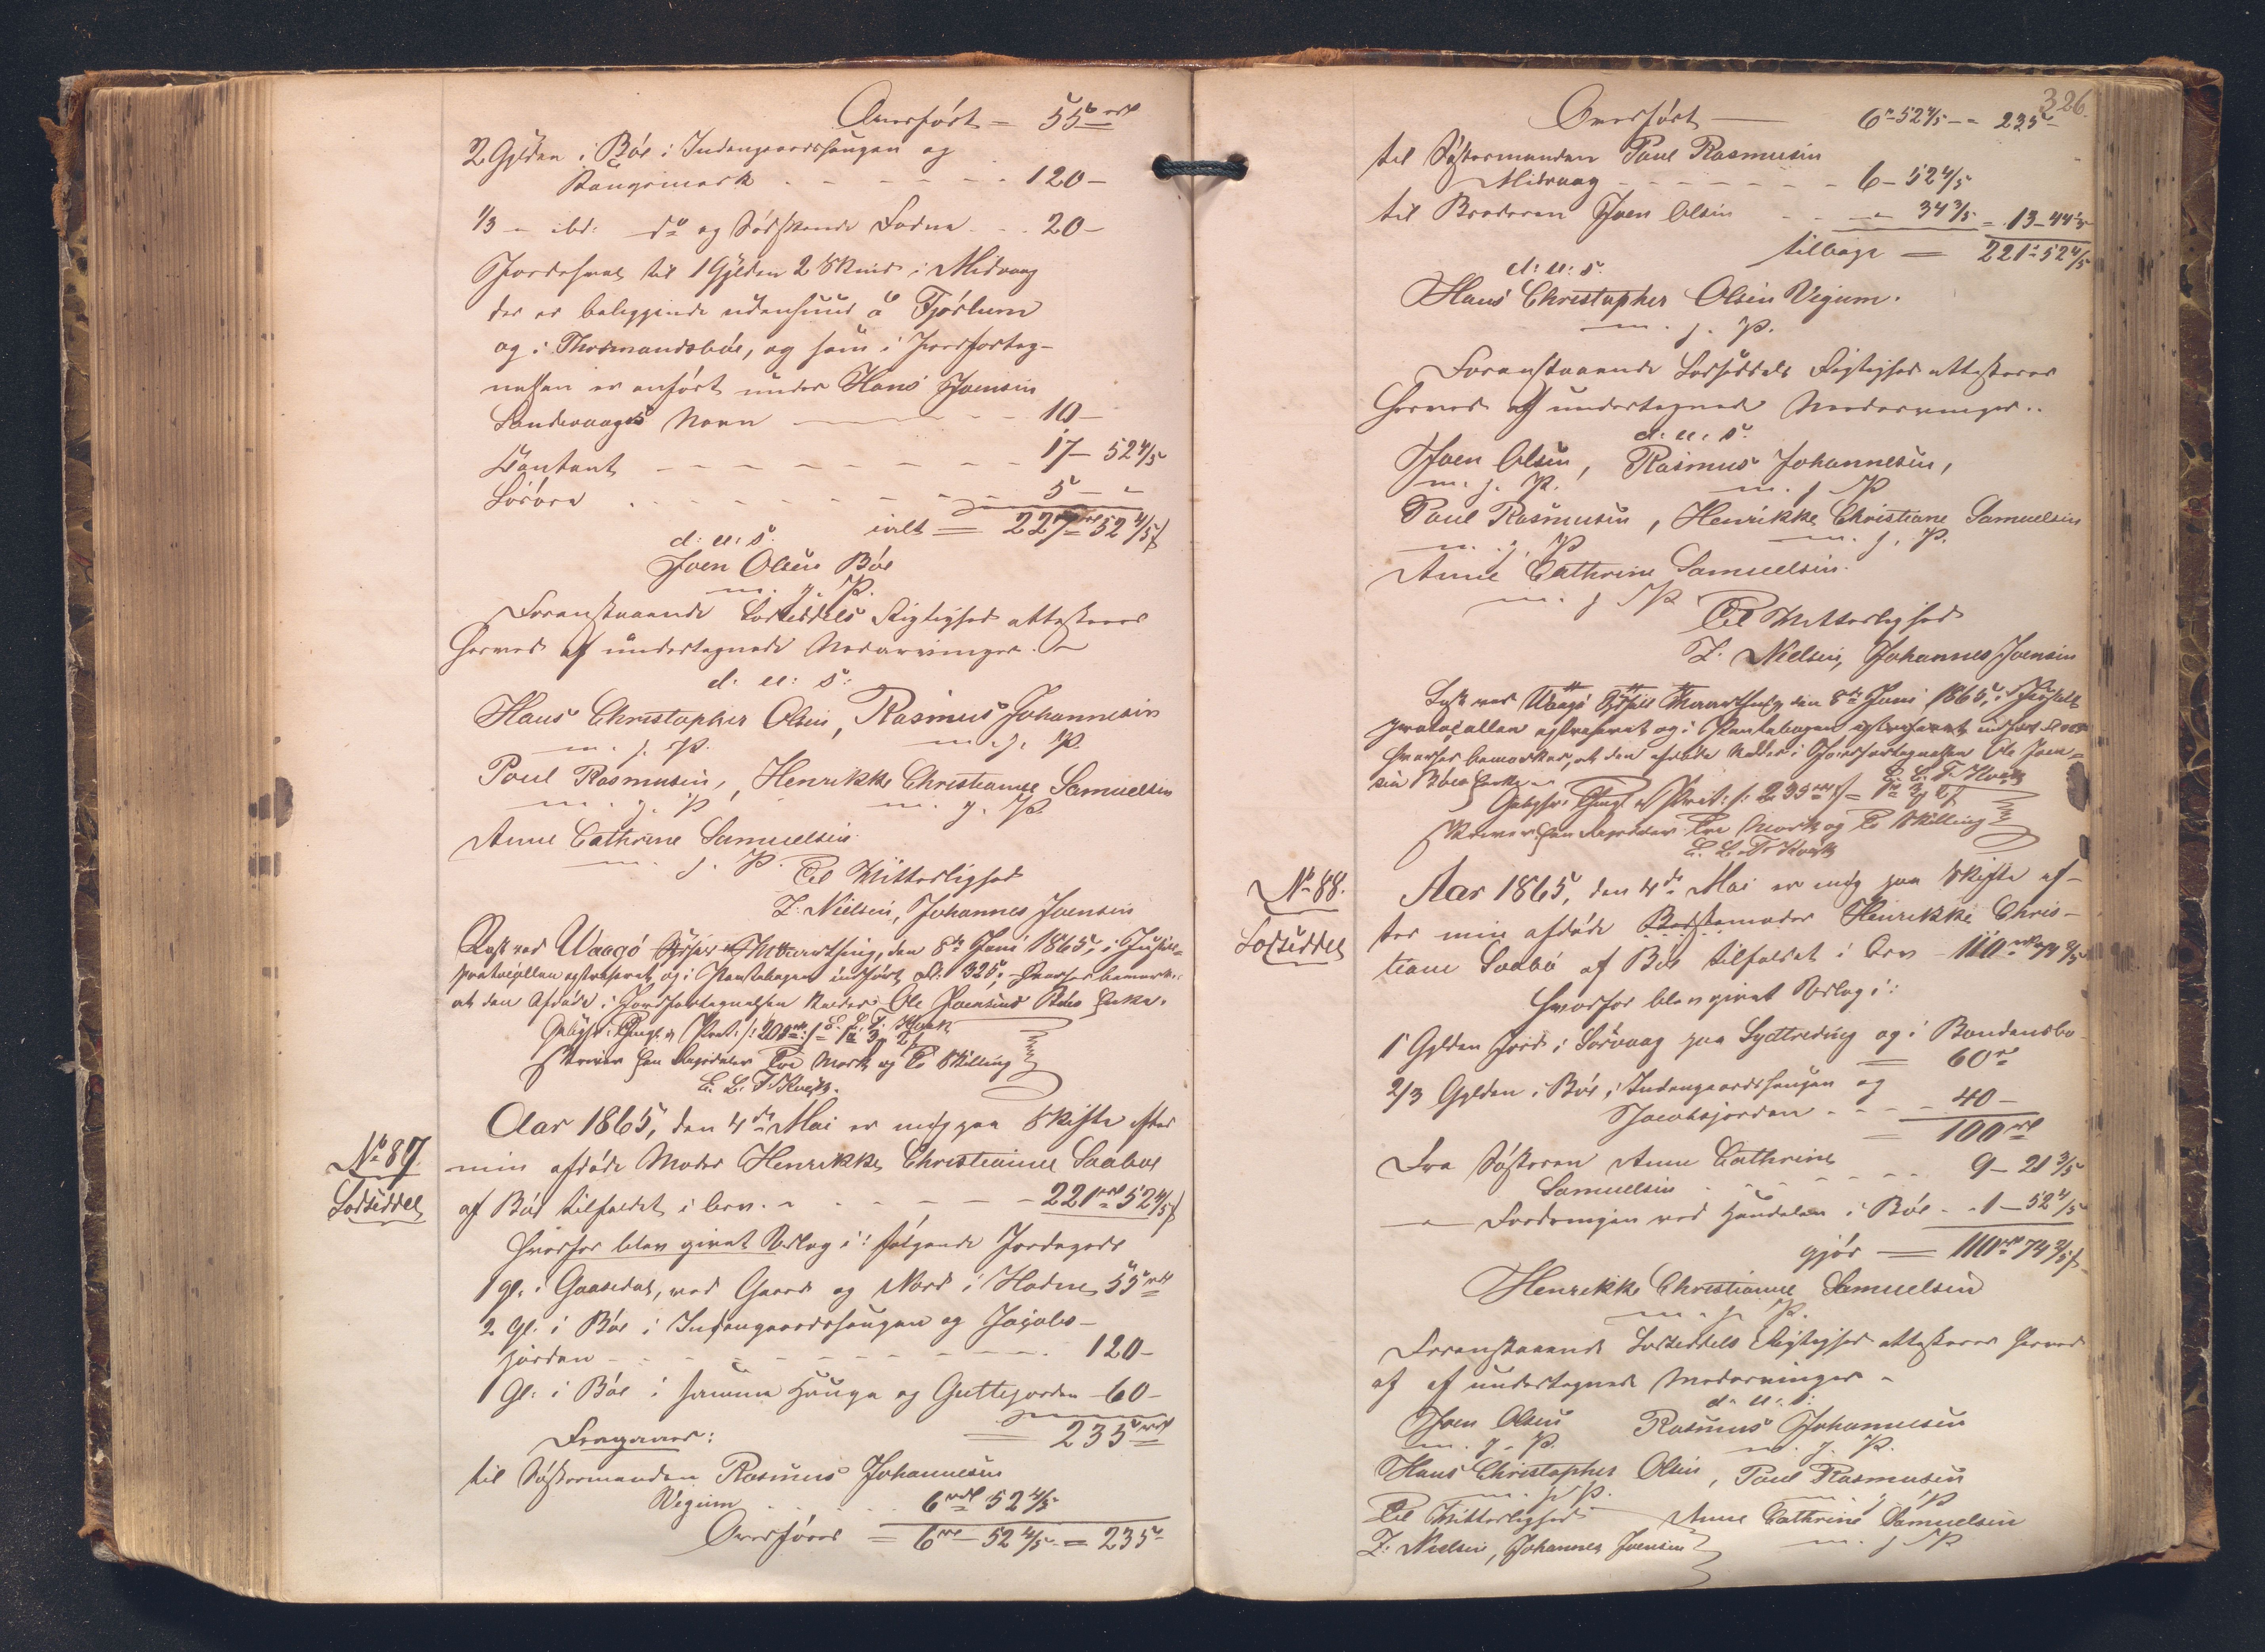 Overført = 55 rdl
2 Gylden i Bøe i Indengaardshaugen og
Kongsmark - - - - - - 120 -
1/3 - ibd: do og Sødskende Jodne - . . 20 -
Jordshval til 1 Gylden 2 Skind i Midvaag
der er beliggende udensund å Fjørlum
og i Thormandsbøe, og som i Jordforteg-
nelsen er anført under Hans Joensen
Sandevaags Navn - - - 10 -
Contant - - - - - - - 17 - 52 4/5
Løsøre . - - - - - - 5 - -
ialt = 227 rdl 52 4/5 f
d: u: s:
Joen Olsen Bøe
m. f. P.
Foranstaaende Lodseddels Rigtighed attesteres
herved af undertegnede Medarvinger.
d: u: s:
Hans Christopher Olsen, Rasmus Johannesen
m. f. P. m. f. P.
Poul Rasmusen, Henrikke Christianne Samuelsen
m. f. P. m. f. P.
Anne Cathrine Samuelsen
m. f. P. Til Vitterlighed
Z. Nielsen, Johannes Joensen
Læst ved Waagø Sysels Vaarthing, den 8de Juni 1865, i Justits-
protocollen extraheret og i Pantebogen indført Fol: 325; hvorhos bemærkes
at den Afdøde i Jordfortegnelsen kaldes Ole Joensens Bøes Enke.
E. L. T. Kvejs
Gebyhr: Thingl. & Prot: /: 200 rd :/ = 1 rd 3 m 2 s
skriver Een Rigsdaler Tre Mark og To Skilling
E. L. T. Kvejs.
No 87.
Lodseddel
Aar 1865, den 4de Mai er mig paa Skifte efter
min afdøde Moder Henrikke Christianne Saabøe
af Bøe tilfaldet i Arv - - - - - 221 rdl 52 4/5 f
hvorfor blev givet Udlæg i: følgende Jordegods
1 gl. i Gaasedal, ved Gaard og Nord i Hodne 55 rdl
2 gl. i Bøe i Indengaardshaugen og Jacobs-
jorden - - - - - - - - - 120 -
1 Gl: i Bøe i samme Hauge og Guttejorden - 60 -
= 235 rdl
Fragaaer:
til Søstermanden Rasmus Johannesen
Vegum - - - - 6 rdl 52 4/5
Overføres = 6 rd - 52 4/5 - = 235 -
326.
Overført - 6 - 52 4/5 - = 235 -
til Søstermanden Poul Rasmusen
Midvaag - - - - - - - 6 - 52 4/5
til Broderen Joen Olsen - - - 34 3/5 = 13 - 44 1/5
tilbage = 221 - 52 4/5
d: u: s:
Hans Christopher Olsen Vegum.
m. f. P.
Foranstaaende Lodseddels Rigtighed attesteres
herved af undertegnede Medarvinger..
d: u: s:
Joen Olsen, Rasmus Johannesen,
m. f. P. m. f. P
Poul Rasmusen, Henrikke Christiane Samuelsen
m. f. P m. f. P.
Anne Cathrine Samuelsen.
m. f. P.
Til Vitterlighed
Z. Nielsen, Johannes Joensen
Læst ved Waagø Sysels Vaarthing den 8de Juni 1865, i Justits
protocollen extraheret og i Pantebogen indført
hvorhos bemærkes, at den afdøde kaldes i Jordfortegnelsen Ole Joen-
sen Bøes Enke.
E. L. T. Kvejs
Gebyhr: Thingl. & Prot: /: 235 rd :/ = 1 rd 3 m 2 s
skriver Een Rigsdaler Tre Mark og To Skilling
E. L. T. Kvejs
No 88.
Lodseddel
Aar 1865, den 4de Mai er mig paa Skifte ef-
ter min afdøde Bedstemoder Henrikke Chris-
tiane Saabø af Bøe tilfaldet i Arv - 110 rdl 74 2/5
hvorfor blev givet Udlæg i:
1 Gylden Jord i Sørvaag paa Lydtreding og i Bondensbø
= 60 rd
2/3 Gylden i Bøe, i Indengaardshaugen og
Jacobsjorden - - - - 40 -
= 100 rdl
Fra Søsteren Anne Cathrine
Samuelsen - - - - - - 9 - 21 3/5
- Fordringen ved Handelen i Bøe - - 1 - 52 4/5
gjør = 110 rdl 74 2/5 f
Henrikke Christianne Samuelsen
m. f. P.
Foranstaaende Lodseddels Rigtighed attesteres herved
af af undertegnede Medarvinger -
d: u: s:
Joen Olsen Rasmus Johannesen
m. f. P. m. f. P.
Hans Christopher Olsen, Poul Rasmusen
m. f. P. m. f. P
Til Vitterlighed Anne Cathrine Samuelsen
Z. Nielsen, Johannes Joensen m. f. P